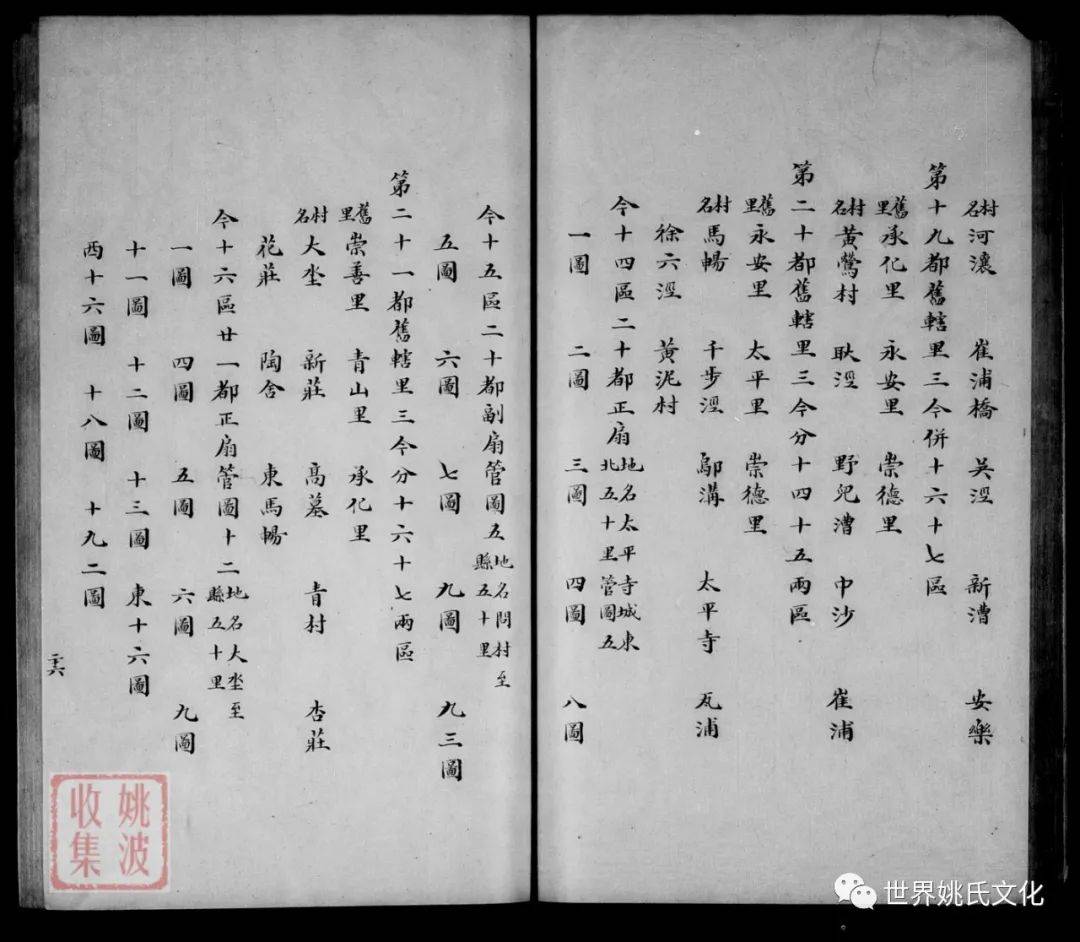 村名河瀼 崔浦橋 吳涇 新漕 安樂
第十九都舊轄里三今併十六十七區
舊里承化里 永安里 崇德里
村名黃鶯村 耿涇 野兒漕 中沙 崔浦
第二十都舊轄里三今分十四十五兩區
舊里永安里 太平里 崇德里
村名馬暢 千步涇 鄔溝 太平寺 瓦浦
徐六涇 黃泥村
今十四區二十都正扇地名太平寺城東北五十里管圖五
一圖 二圖 三圖 四圖 八圖
今十五區二十都副扇管圖五地名問村至縣五十里
五圖 六圖 七圖 九圖 九三圖
第二十一都舊轄里三今分十六十七兩區
舊里崇善里 青山里 承化里
村名大坐 新莊 高墓 青村 杏莊
花莊 陶舍 東馬暢
今十六區廿一都正扇管圖十二地名大坐至縣五十里
一圖 四圖 五圖 六圖 九圖
十一圖 十二圖 十三圖 東十六圖
西十六圖 十八圖 十九二圖
二十六
姚波收集
世界姚氏文化